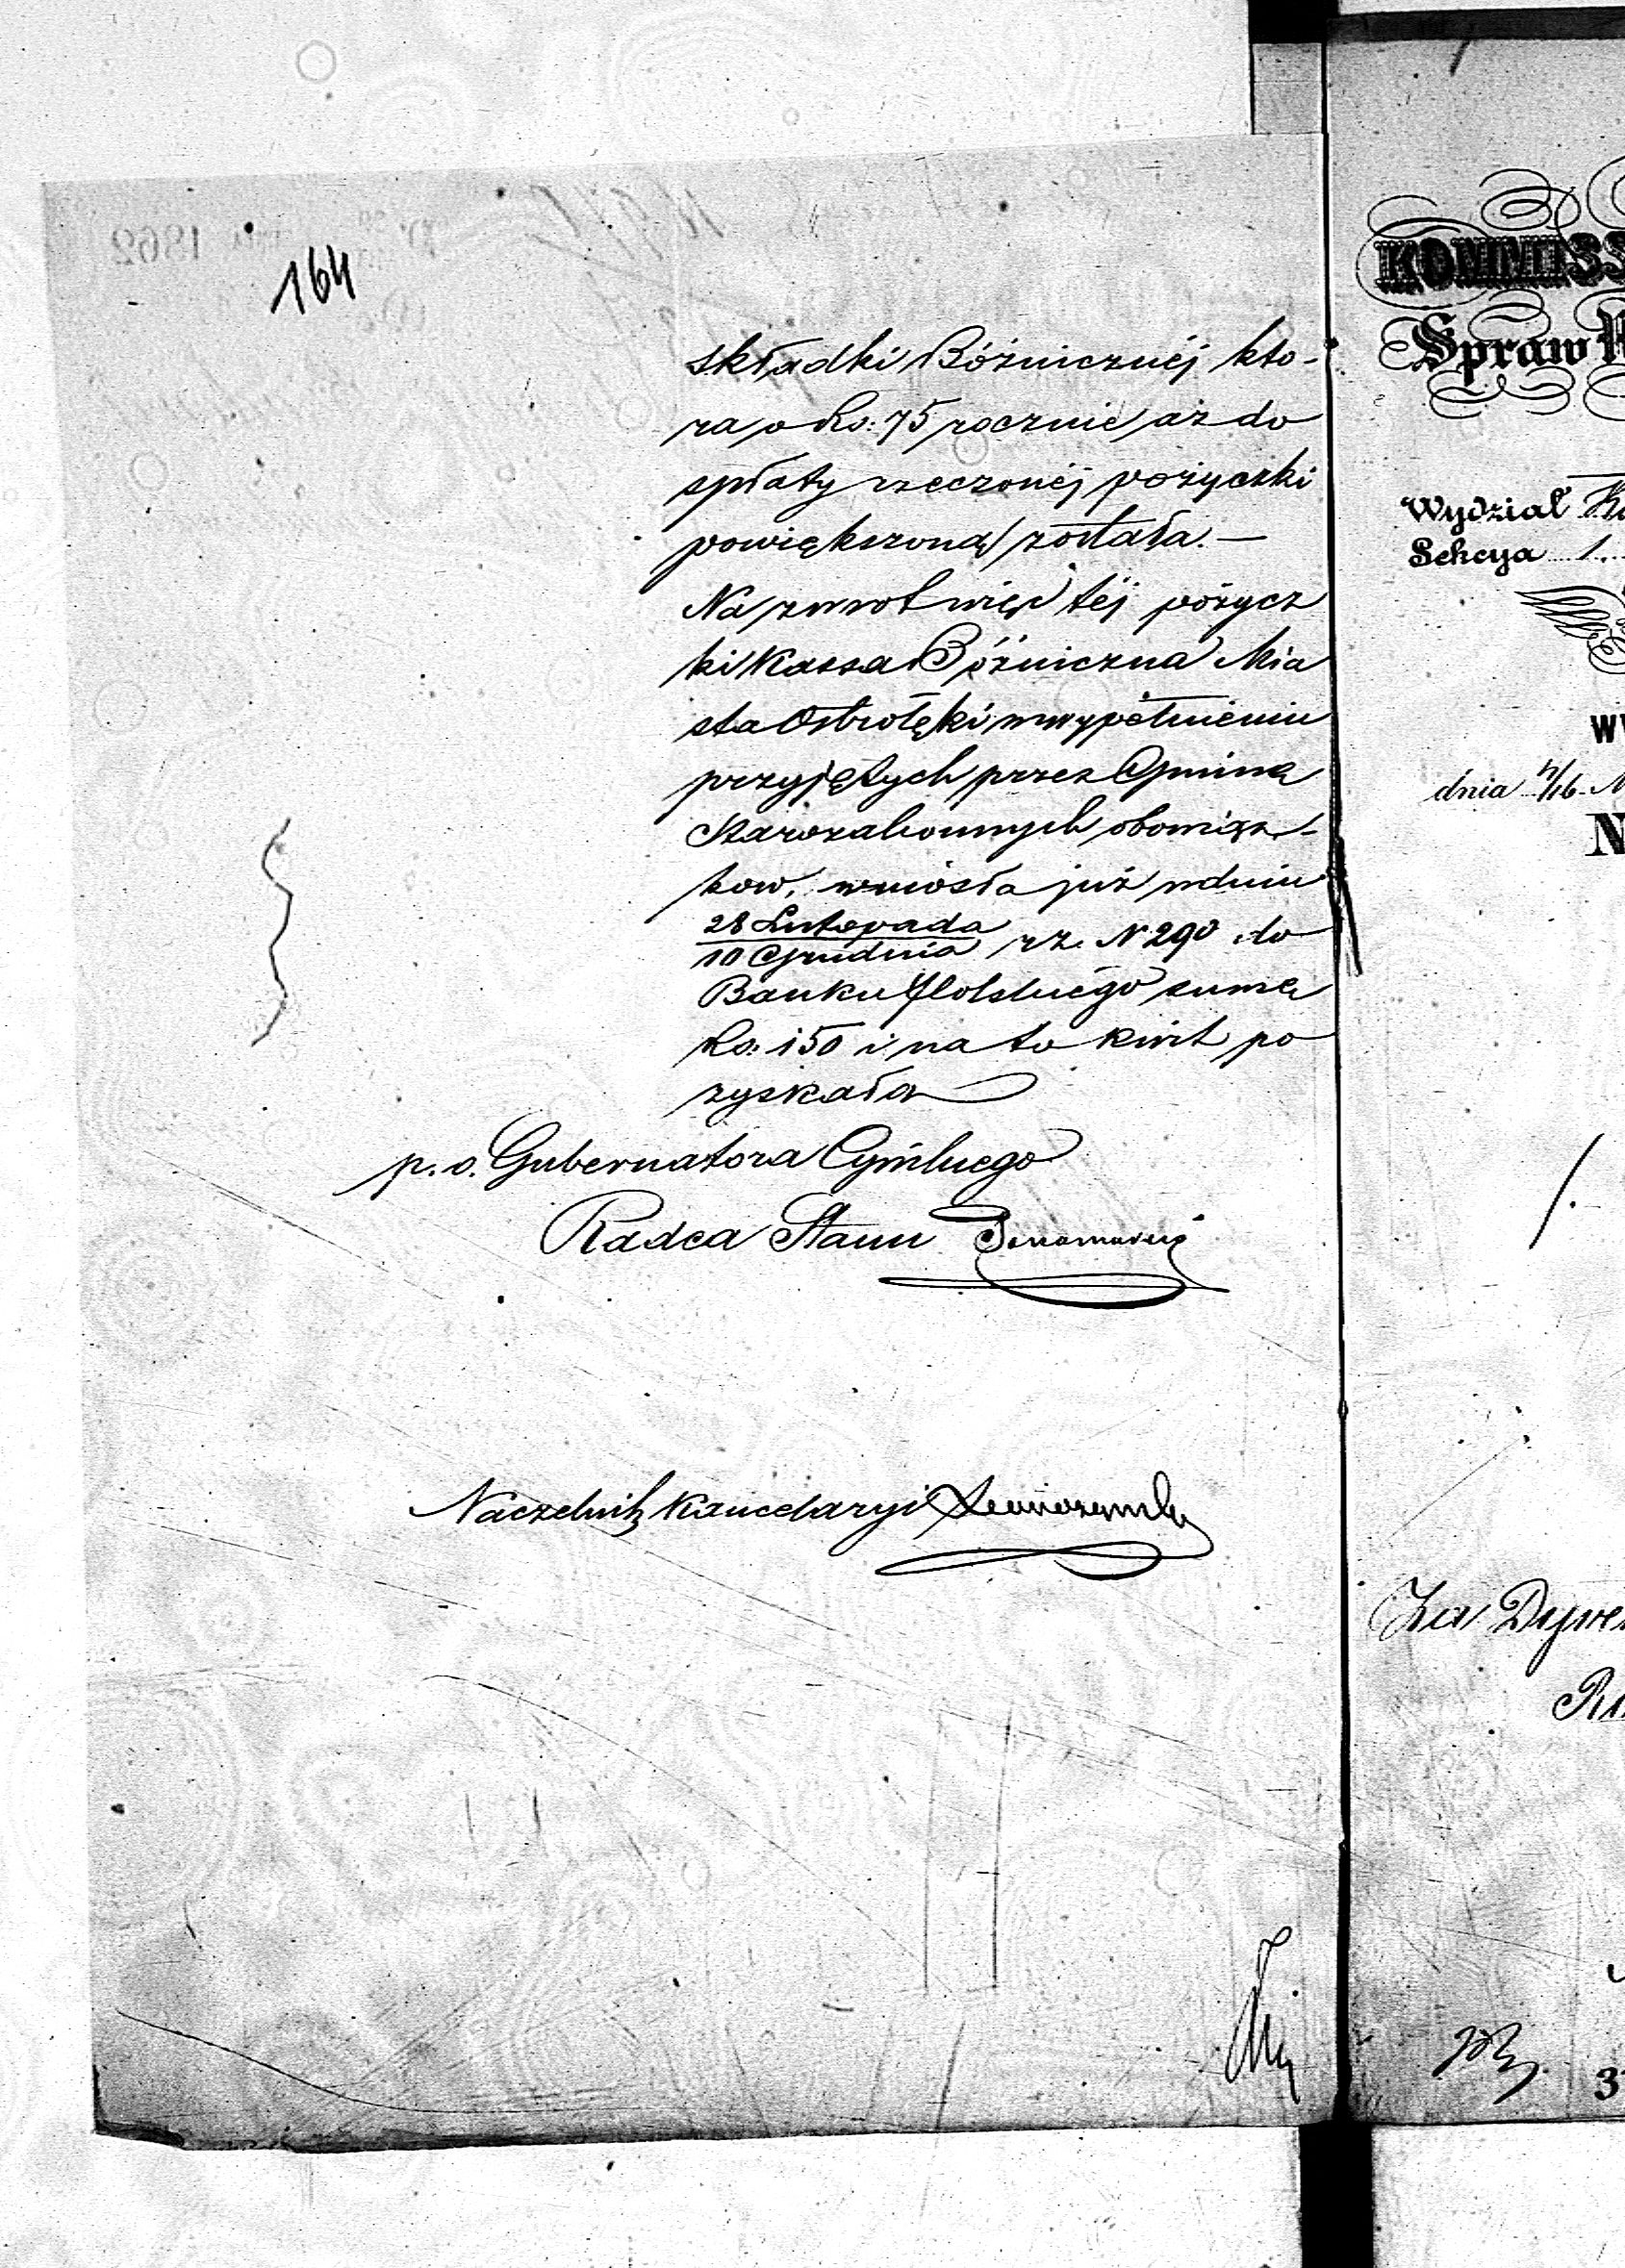 164
składki Bóżnicznéj kto-
ra o Rs: 75 rocznie aż do
spłaty rzeczonéj pożyczki
powiększoną została. —
Na zwrot więc téj pożycz
ki Kassa Bóżniczna Mia
sta Ostrołęki w wypełnieniu
przyjętych przez Gminę
Starozakonnych obowiąz-
kow, wniosła już w dniu
28 Listopada
10 Grudnia rz. N 290 do
Banku Polskiego sumę
Rs: 150 i na to kwit po
zyskała
p. o. Gubernatora Cywilnego
Radca Stanu
Naczelnik Kancelaryi
KOMMISS
Spraw W
Wydział
Sekcya 1.
dnia 4/16 M
N
Za Dyre